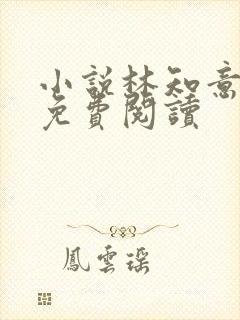 小說林知意
免費閱讀
鳳雲瑤